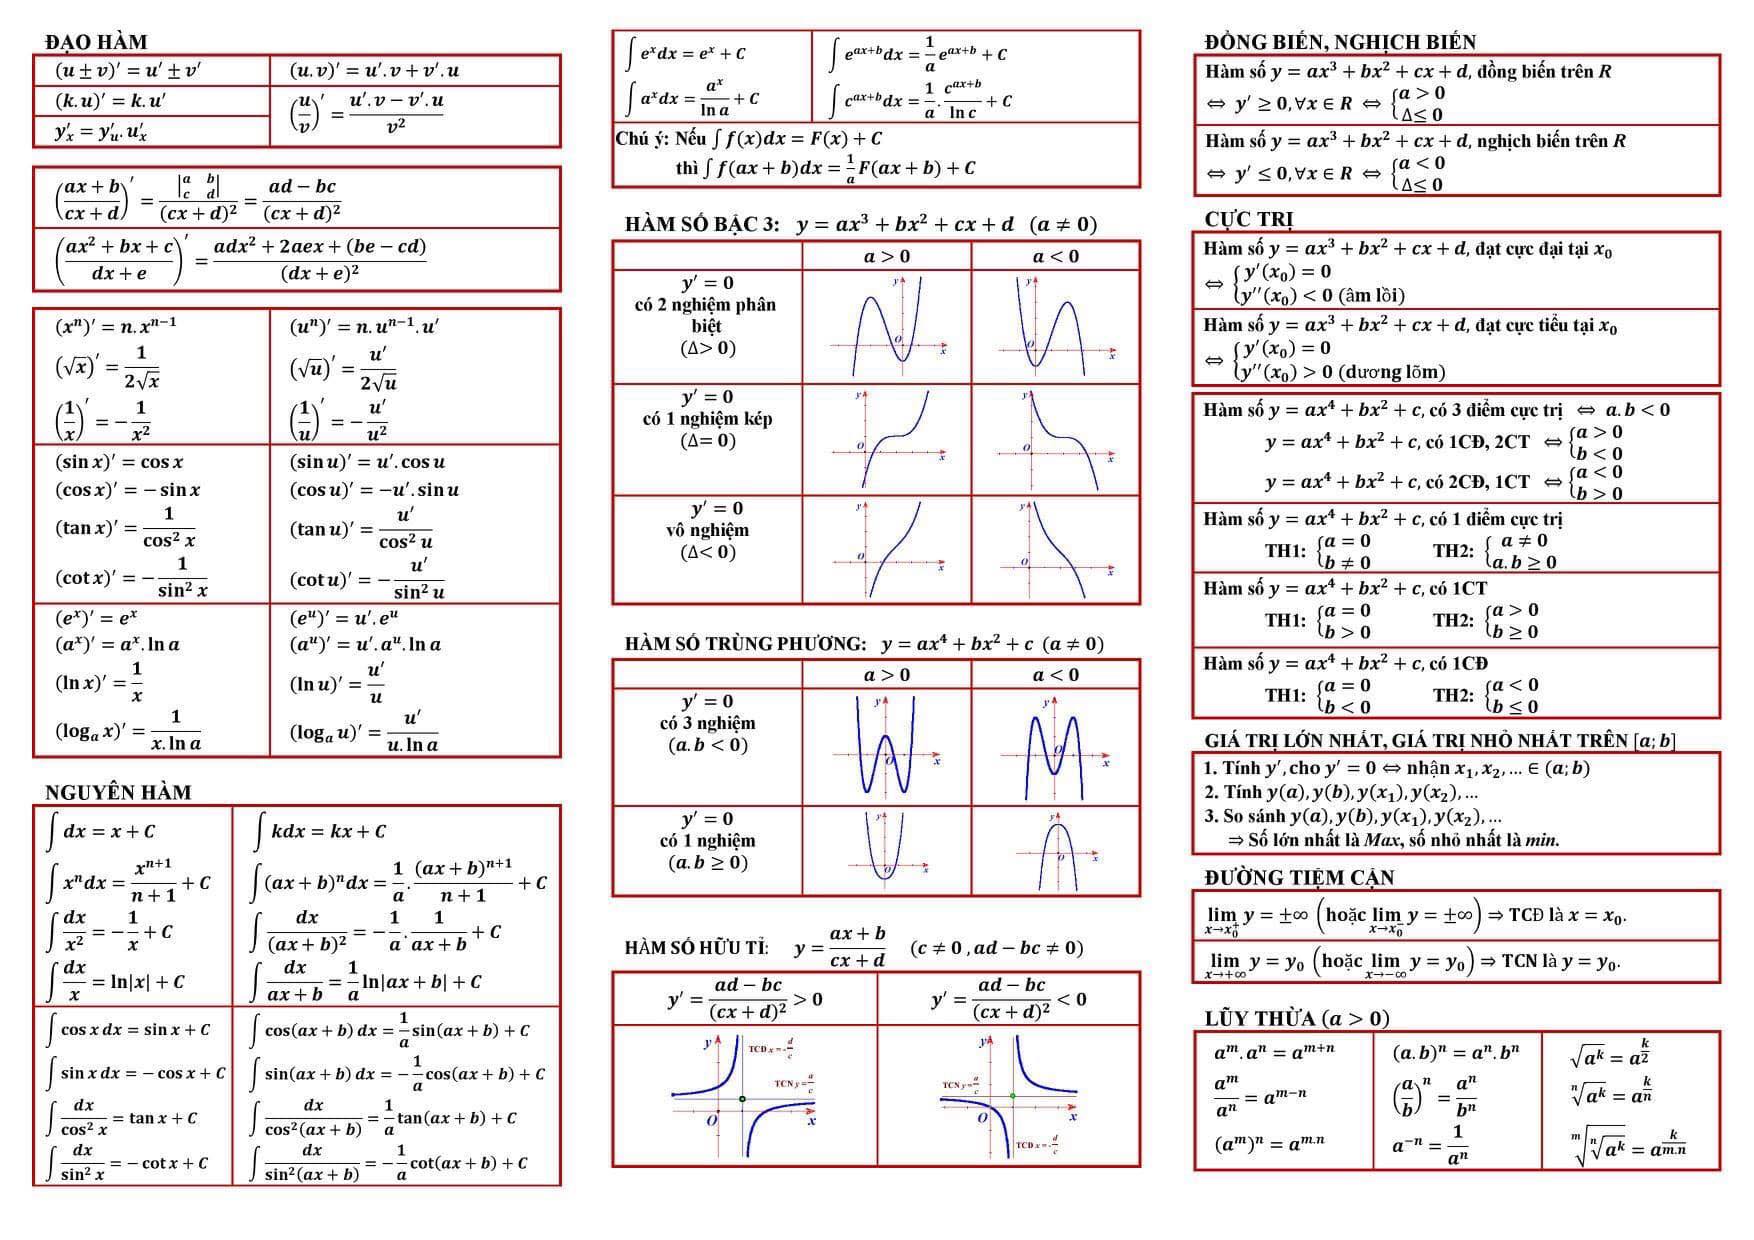 ĐẠO HÀM
(u ± v)′ = u′ ± v′
(u.v)′ = u′.v + v′.u
(k.u)′ = k.u′
(u/v)′ = (u′.v − v′.u)/v²
y′ₓ = y′ᵤ.u′ₓ
((ax + b)/(cx + d))′ = |a b; c d|/(cx + d)² = (ad − bc)/(cx + d)²
((ax² + bx + c)/(dx + e))′ = (adx² + 2aex + (be − cd))/(dx + e)²
(xⁿ)′ = n.xⁿ⁻¹
(uⁿ)′ = n.uⁿ⁻¹.u′
(√x)′ = 1/(2√x)
(√u)′ = u′/(2√u)
(1/x)′ = −1/x²
(1/u)′ = −u′/u²
(sin x)′ = cos x
(sin u)′ = u′.cos u
(cos x)′ = − sin x
(cos u)′ = −u′.sin u
(tan x)′ = 1/cos² x
(tan u)′ = u′/cos² u
(cot x)′ = −1/sin² x
(cot u)′ = −u′/sin² u
(eˣ)′ = eˣ
(eᵘ)′ = u′.eᵘ
(aˣ)′ = aˣ.ln a
(aᵘ)′ = u′.aᵘ.ln a
(ln x)′ = 1/x
(ln u)′ = u′/u
(logₐ x)′ = 1/(x.ln a)
(logₐ u)′ = u′/(u.ln a)
NGUYÊN HÀM
∫ dx = x + C
∫ kdx = kx + C
∫ xⁿdx = xⁿ⁺¹/(n + 1) + C
∫ (ax + b)ⁿdx = 1/a.(ax + b)ⁿ⁺¹/(n + 1) + C
∫ dx/x² = −1/x + C
∫ dx/(ax + b)² = −1/a.1/(ax + b) + C
∫ dx/x = ln|x| + C
∫ dx/(ax + b) = 1/a ln|ax + b| + C
∫ cos x dx = sin x + C
∫ cos(ax + b) dx = 1/a sin(ax + b) + C
∫ sin x dx = − cos x + C
∫ sin(ax + b) dx = −1/a cos(ax + b) + C
∫ dx/cos² x = tan x + C
∫ dx/cos²(ax + b) = 1/a tan(ax + b) + C
∫ dx/sin² x = − cot x + C
∫ dx/sin²(ax + b) = −1/a cot(ax + b) + C
∫ eˣdx = eˣ + C
∫ eᵃˣ⁺ᵇdx = 1/a eᵃˣ⁺ᵇ + C
∫ aˣdx = aˣ/ln a + C
∫ cᵃˣ⁺ᵇdx = 1/a.cᵃˣ⁺ᵇ/ln c + C
Chú ý: Nếu ∫ f(x)dx = F(x) + C
thì ∫ f(ax + b)dx = 1/a F(ax + b) + C
HÀM SỐ BẬC 3: y = ax³ + bx² + cx + d (a ≠ 0)
a > 0
a < 0
y′ = 0
có 2 nghiệm phân
biệt
(Δ> 0)
y
O
x
y
O
x
y′ = 0
có 1 nghiệm kép
(Δ= 0)
y
O
x
y
O
x
y′ = 0
vô nghiệm
(Δ< 0)
y
O
x
y
O
x
HÀM SỐ TRÙNG PHƯƠNG: y = ax⁴ + bx² + c (a ≠ 0)
a > 0
a < 0
y′ = 0
có 3 nghiệm
(a.b < 0)
y
O
x
y
O
x
y′ = 0
có 1 nghiệm
(a.b ≥ 0)
y
O
x
y
O
x
HÀM SỐ HỮU TỈ: y = (ax + b)/(cx + d) (c ≠ 0 , ad − bc ≠ 0)
y′ = (ad − bc)/(cx + d)² > 0
y′ = (ad − bc)/(cx + d)² < 0
y
TCD x = -d/c
TCN y = a/c
O
x
y
TCN y = a/c
O
x
TCD x = -d/c
ĐỒNG BIẾN, NGHỊCH BIẾN
Hàm số y = ax³ + bx² + cx + d, đồng biến trên R
⇔ y′ ≥ 0, ∀x ∈ R ⇔ {a > 0
Δ≤ 0
Hàm số y = ax³ + bx² + cx + d, nghịch biến trên R
⇔ y′ ≤ 0, ∀x ∈ R ⇔ {a < 0
Δ≤ 0
CỰC TRỊ
Hàm số y = ax³ + bx² + cx + d, đạt cực đại tại x₀
⇔ {y′(x₀) = 0
y′′(x₀) < 0 (âm lồi)
Hàm số y = ax³ + bx² + cx + d, đạt cực tiểu tại x₀
⇔ {y′(x₀) = 0
y′′(x₀) > 0 (dương lõm)
Hàm số y = ax⁴ + bx² + c, có 3 điểm cực trị ⇔ a.b < 0
y = ax⁴ + bx² + c, có 1CĐ, 2CT ⇔ {a > 0
b < 0
y = ax⁴ + bx² + c, có 2CĐ, 1CT ⇔ {a < 0
b > 0
Hàm số y = ax⁴ + bx² + c, có 1 điểm cực trị
TH1: {a = 0 TH2: {a ≠ 0
b ≠ 0 a.b ≥ 0
Hàm số y = ax⁴ + bx² + c, có 1CT
TH1: {a = 0 TH2: {a > 0
b > 0 b ≥ 0
Hàm số y = ax⁴ + bx² + c, có 1CĐ
TH1: {a = 0 TH2: {a < 0
b < 0 b ≤ 0
GIÁ TRỊ LỚN NHẤT, GIÁ TRỊ NHỎ NHẤT TRÊN [a; b]
1. Tính y′, cho y′ = 0 ⇔ nhận x₁, x₂, … ∈ (a; b)
2. Tính y(a), y(b), y(x₁), y(x₂), …
3. So sánh y(a), y(b), y(x₁), y(x₂), …
⇒ Số lớn nhất là Max, số nhỏ nhất là min.
ĐƯỜNG TIỆM CẬN
lim x→x₀⁺ y = ±∞ (hoặc lim x→x₀⁻ y = ±∞) ⇒ TCĐ là x = x₀.
lim x→+∞ y = y₀ (hoặc lim x→−∞ y = y₀) ⇒ TCN là y = y₀.
LŨY THỪA (a > 0)
aᵐ.aⁿ = aᵐ⁺ⁿ
(a.b)ⁿ = aⁿ.bⁿ
√(aᵏ) = a^(k/2)
aᵐ/aⁿ = aᵐ⁻ⁿ
(a/b)ⁿ = aⁿ/bⁿ
ⁿ√(aᵏ) = a^(k/n)
(aᵐ)ⁿ = a^(m.n)
a⁻ⁿ = 1/aⁿ
ᵐ√(ⁿ√(aᵏ)) = a^(k/(m.n))